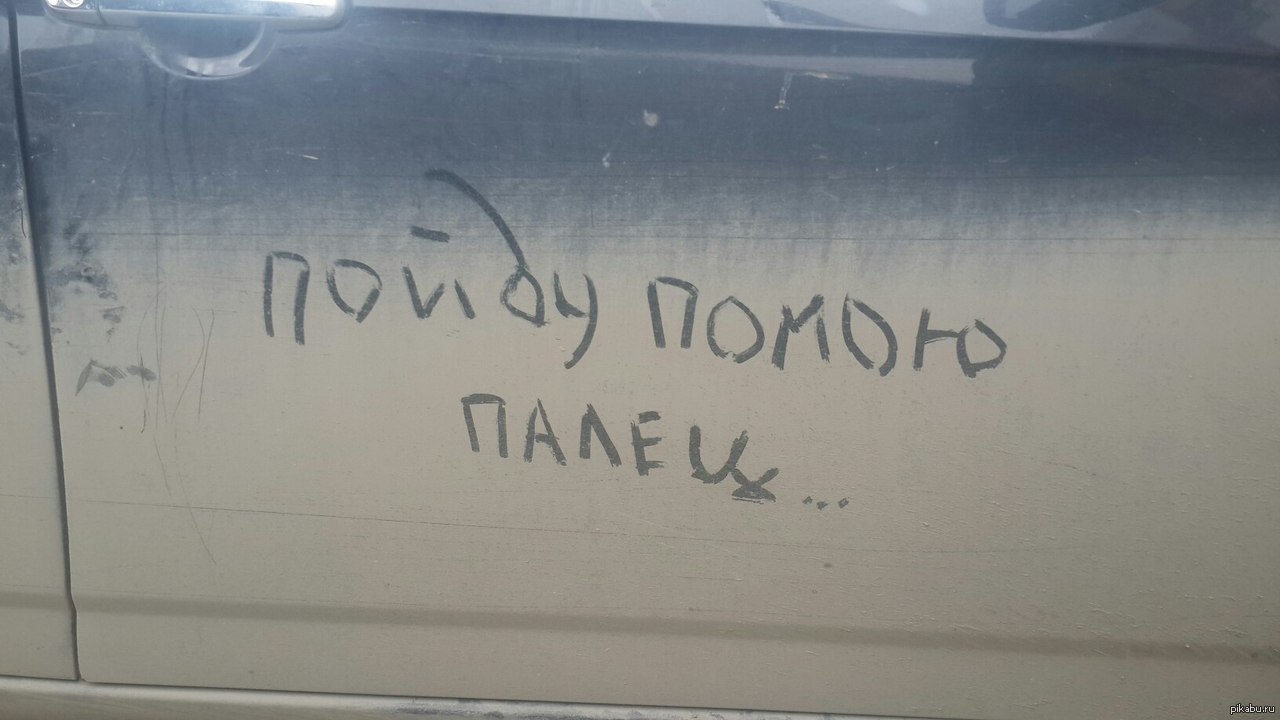 пойду помою
палец...
pikabu.ru